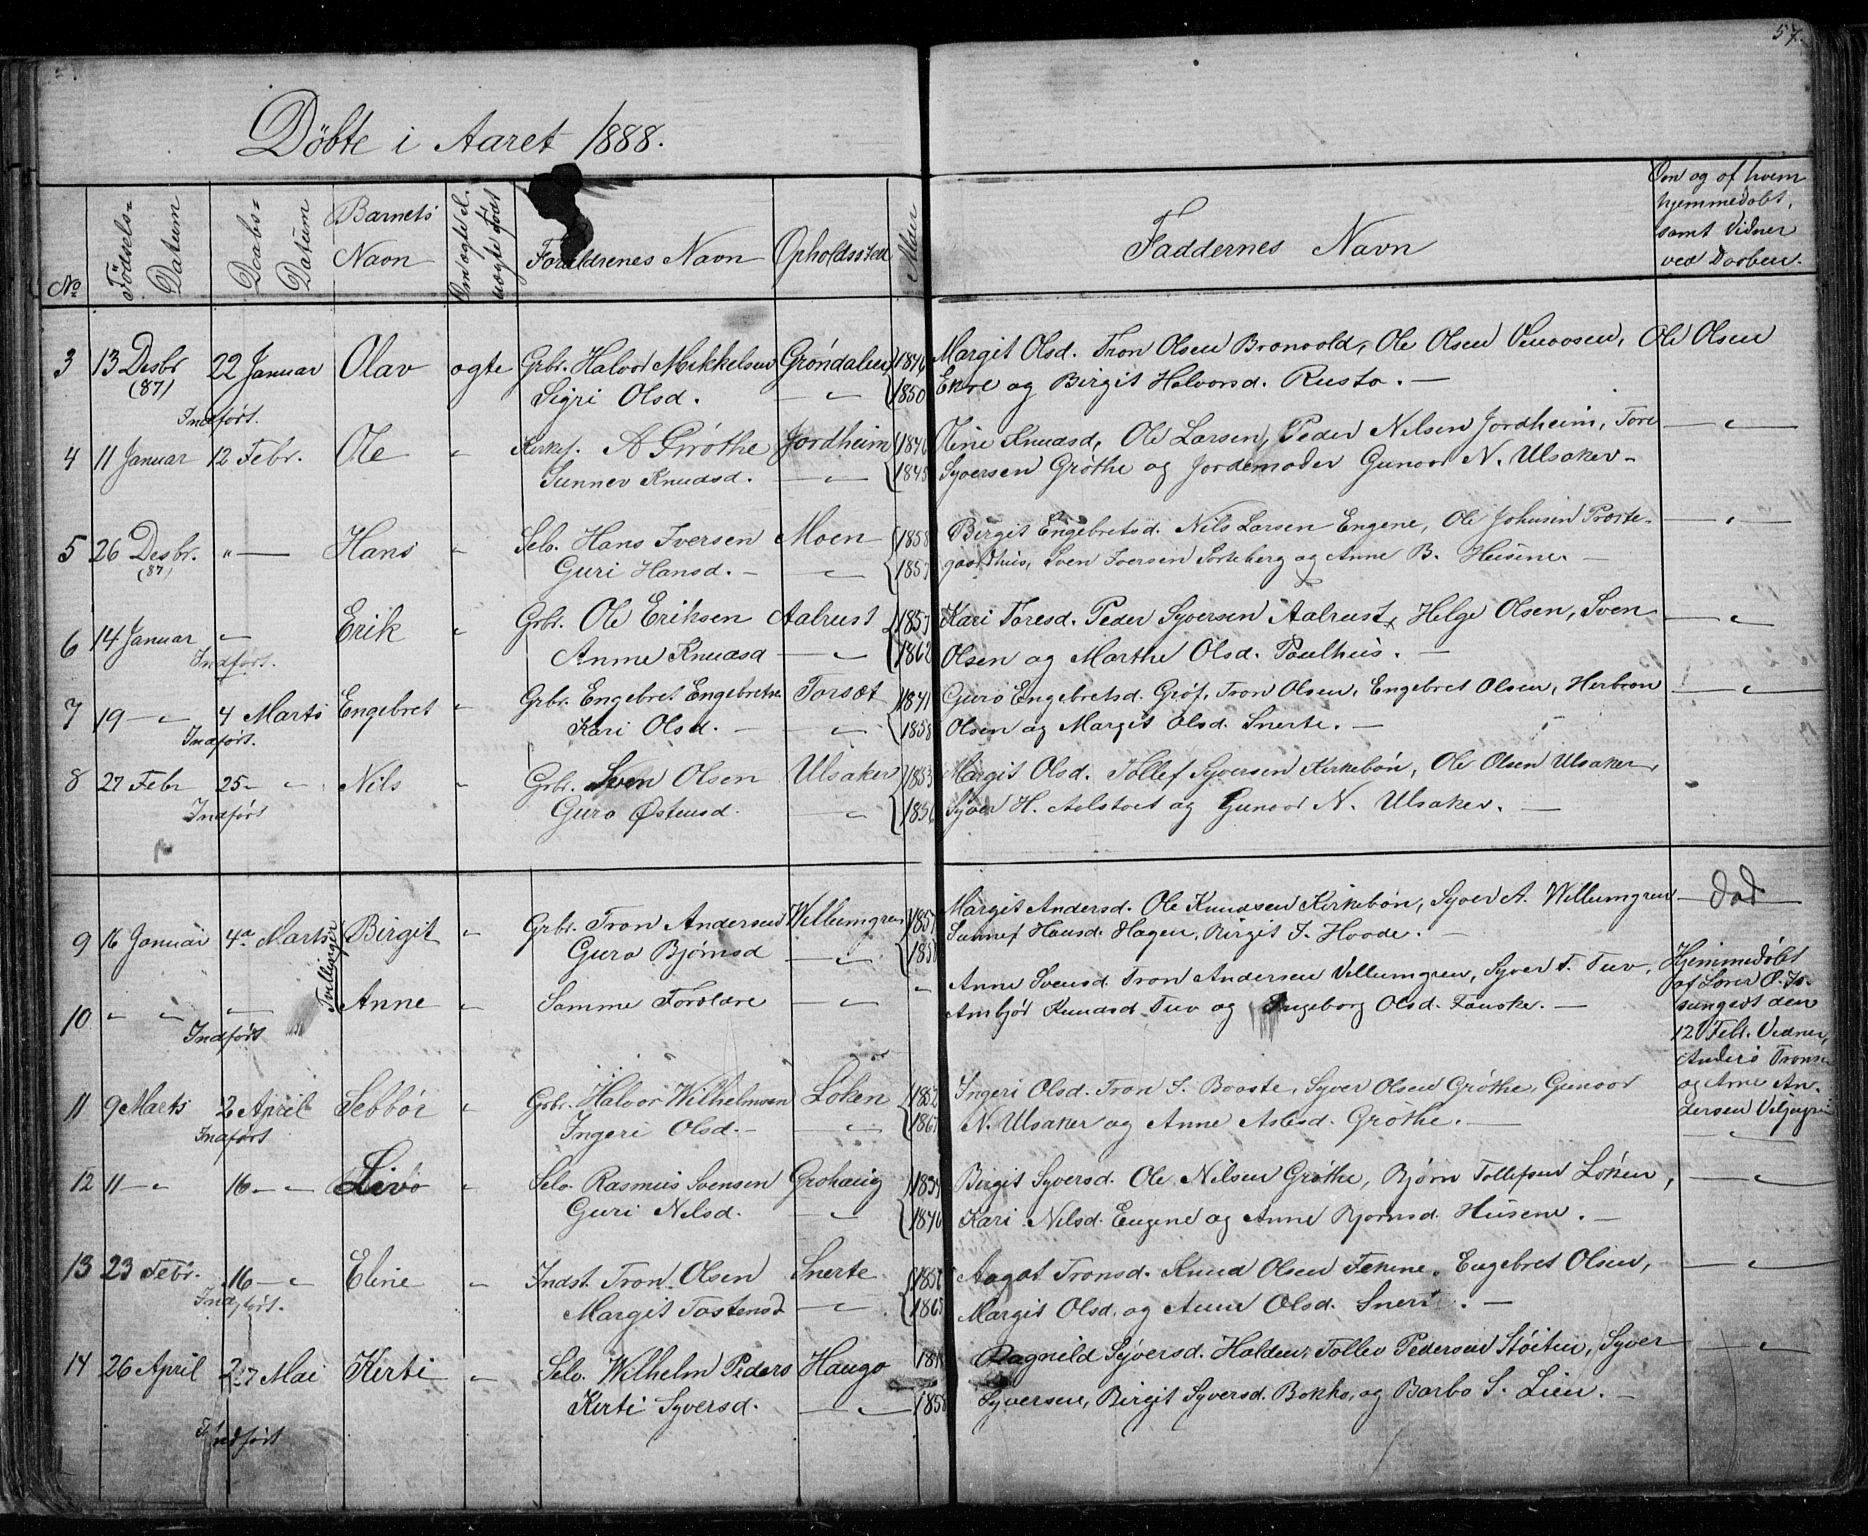 57.
Döbte i Aaret 1888.
No
Födsels= Datum
Daabs= Datum
Barnets Navn
Om ægte el. uægte Födt
Forældrenes Navn
Opholdssted
Alder
Faddernes Navn
Om og af hvem hjemmedöbt, samt Vidner ved Daaben.
3 13 Desbr (87) 22 Januar Olav ægte Grbr. Halvor Mikkelsen Gröndalen 1846 Margit Olsd. Tron Olsen Brenvold, Ole Olsen Venaasen, Ole Olsen
Sigri Olsd. — " — 1850 Ekre og Birgit Helvorsd. Rusto. —
Indfört.
4 11 Januar 12 Febr. Ole " Kirkes. A Gröthe Jordheim 1846 Oline Knudsd, Ole Larsen, Peder Nilsen Jordheim, Tore — " —
Sunnev Knudsd. — " — 1845 Syversen Gröthe og Jordemoder Gunvor N. Ulsaker —
5 26 Desbr. (87) " — Hans " Selv. Hans Iversen Moen 1858 Birgit Engebretsd. Nils Larsen Engene, Ole Johnsen Præste- — " —
Guri Hansd. — — " — 1857 gaardhus, Sven Iversen Sorteberg og Anne B. Husene. —
6 14 Januar " — Erik " Grbr. Ole Eriksen Aalrust 1857 Kari Toresd. Peder Syversen Aalrust, Helge Olsen, Sven — " —
Indfört. Anne Knudsd — " — 1862 Olsen og Marthe Olsd. Paulhus. —
7 19 — " 4 Marts Engebret " Grbr. Engebret Engebretsn Torsæt 1841 Guro Engebretsd. Gröf, Tron Olsen, Engebret Olsen, Herbran — " —
Indfört. Kari Olsd. — — " — 1858 Olsen og Margit Olsd. Snerte. —
8 27 Febr 25 — " Nils " Grbr. Sven Olsen Ulsaker 1853 Margit Olsd. Tollef Syversen Kirkebön, Ole Olsen Ulsaker,
Indfört Guro Östensd. — " — 1856 Syver H. Aalstvet og Gunvor N. Ulsaker. —
9 16 Januar 4de Marts Birgit " Grbr. Tron Andersen Willumgren 1857 Margit Andersd. Ole Knudsen Kirkebön, Syver A. Willumgren — död —
Tvillinger
Guro Björnsd — " — 1858 Sunnef Hansd. Hagen, Birgit S. Hoode. —
10 " " " — Anne " Samme Foreldre — " — " Anne Svensd. Tron Andersen Villumgren, Syver T. Tuv,
Indfört Ambjör Knudsd Tuv og Ingeborg Olsd. Fauske. —
Hjemmedöbt
af Lærer O.
den
12 Febr. Vidner,
Anders Tronsen
og Arne An-
dersen
11 9 Marts 2 April Sebbör " Grbr. Halvor Wilhelmsen Löken 1852 Ingeri Olsd. Tron S. Baaste, Syver Olsen Gröthe, Gunvor
Indfört Ingeri Olsd. — — " — N. Ulsaker og Anne Aslesd. Gröthe. — — " —
12 11 — " 16 — " Livö " Selv. Rasmus Svensen Grohaug Birgit Syversd. Ole Nilsen Gröthe, Björn Tollefsen Löken, — " —
Guri Nilsd. — " — 1846 Kari Nilsd. Engene og Anne Bjornsd. Husene. —
13 23 Febr. 16 — " Eline " Indst. Tron Olsen Snerte Aagot Tronsd. Knud Olsen Fekene, Engebret Olsen, — " —
Indfört. Margit Tostensd — " — 1865 Margit Olsd. og Anne Olsd. Snert. —
14 26 April 27 Mai Kirti " Selv. Wilhelm Peders Haugo Ragnild Syversd. Halden, Tollev Pedersen Stöiten, Syver — " —
Kirti Syversd. — " — 1858 Syversen, Birgit Syversd. Bokko, og Barbo S. Lien. —
Indfört